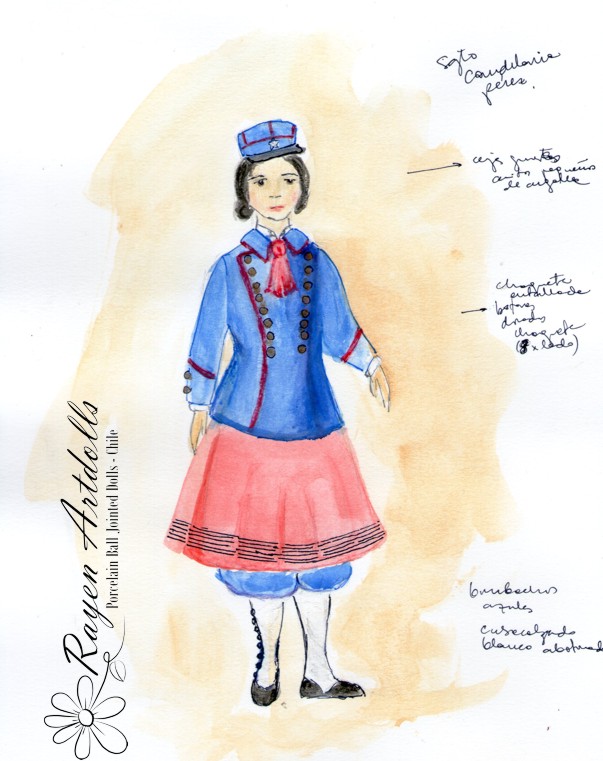 Sgto
Candelaria
Pérez.
cejas juntas
aros pequeños
de argolla
chaqueta
entallada
botones
dorados
chaqueta
(8 x lado)
bombachos
azules
cubrecalzado
blanco abotonado
Rayen Artdolls
Porcelain Ball Jointed Dolls - Chile